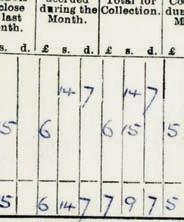 close accrued Total for
last during the Collection. du
nth. Month. M
s. d. £ s. d. £ s. d. £
14 7 14 7
5 6 6 15 5
5 6 14 7 7 9 7 5